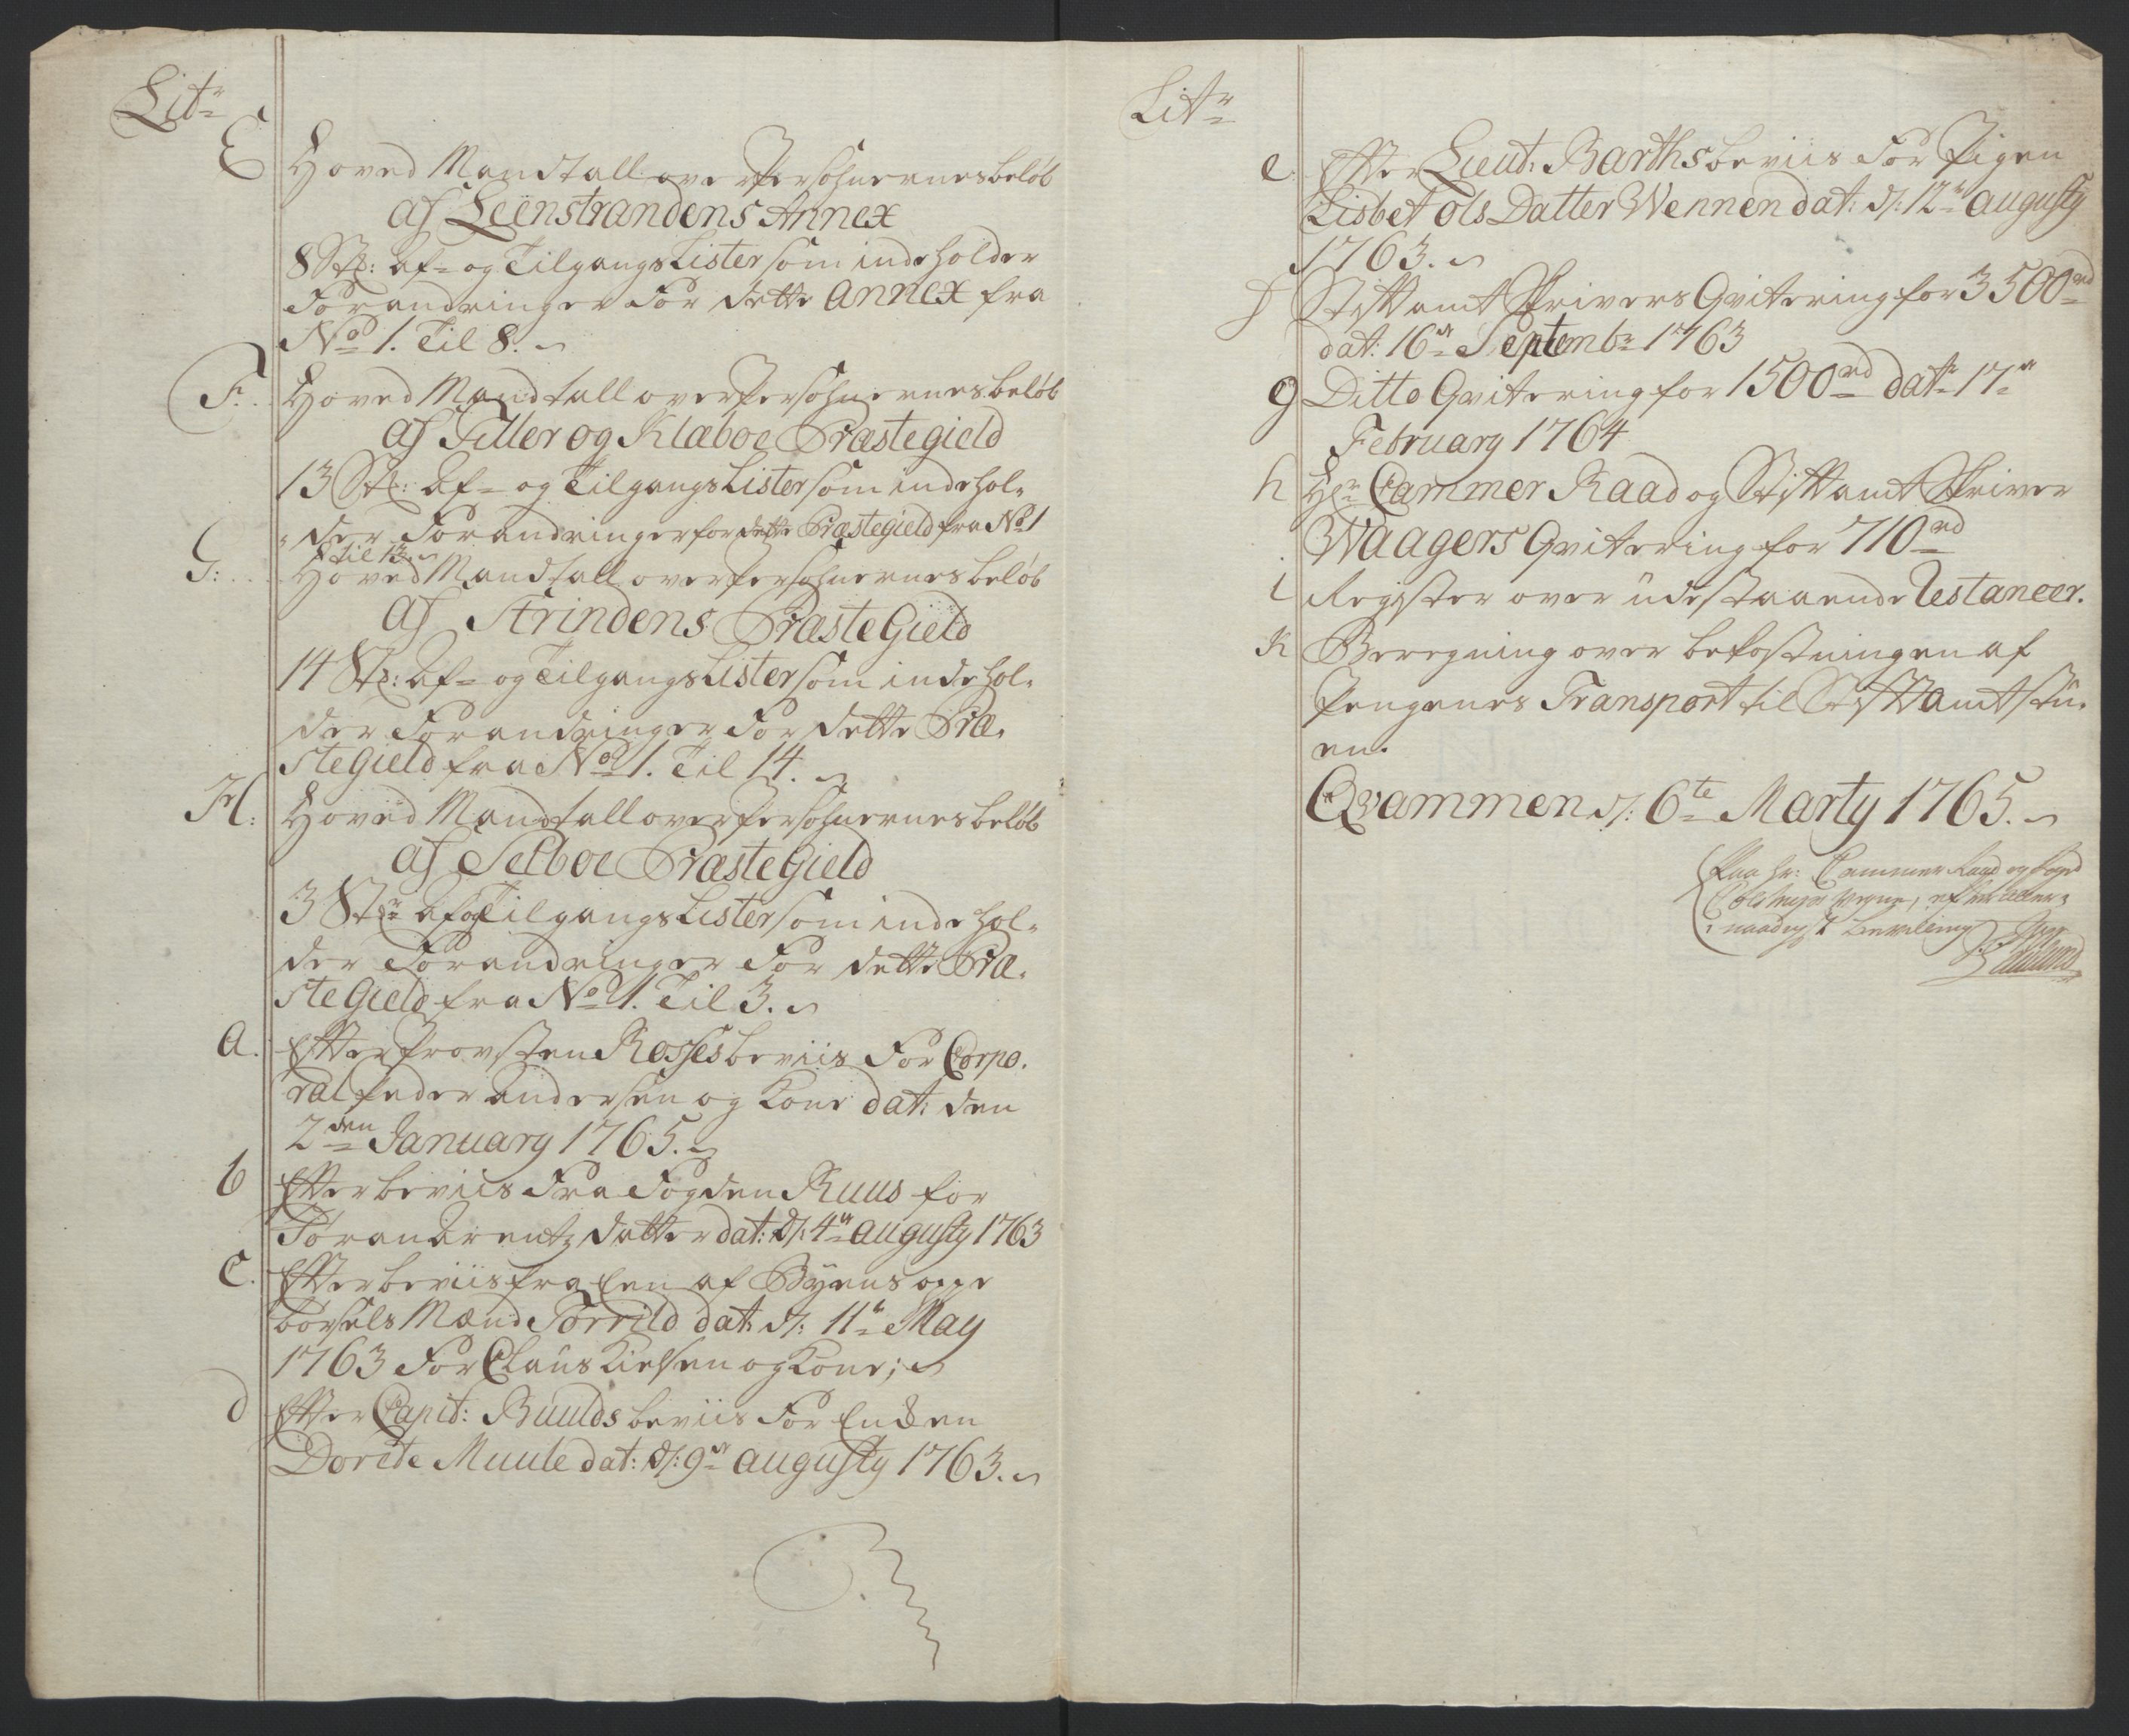 Litr
E Hoved Mandtall over Personernes beløb
af Leënstrandens Annex
8 St: Af- og Tilgangs Lister som indeholder
Forandringer for dette Annex fra
No 1. Til 8.
F. Hoved Mandtall over Personernes beløb
af Tiller og Klæboe Præstegield
13 St: Af- og Tilgangs Lister som indehol-
der Forandringer for dette Præstegield fra No 1
til 13.
G: Hoved Mandtall over Personernes beløb
af Strindens Præste Gield
14 St: Af- og Tilgangs Lister som indehol-
der Forandringer for dette Præ-
steGield fra No 1. Til 14.
H: Hoved Mandtall over Personernes beløb
af Selboe PræsteGield
3 Str Af og Tilgangs Lister som indehol-
der Forandringer for dette Præ-
steGield fra No 1. Til 3.
a. Efter Provsten Rosses beviis for Corpo-
ral Peder Andersen og Kone dat: den
2den January 1765.
b Efter beviis fra Fogden Ruus for
Søran Arentz datter dat: d: 4de augusty 1763
c. Efter beviis fra Een af Byens oppe
børsels Mænd Torrild dat d: 11te May
1763 for Claus Kielsen og Kone;
d Efter Capit: Buulds beviis for Enken
Dorete Muule dat: d: 9de augusty 1763.
Litr
e. Efter Lieut: Barths beviis for Pigen
Lisbet Ols Datter Wennen dat: d: 12te augusty
1763.
f Stiftamt Skrivers Qvitering for 3500rd
dat: 16de Septembr 1763
g Ditto Qvitering for 1500rd datr 17de
February 1764
h Hr Cammer Raad og Stiftamt Skriver
Waagers Qvitering for 710rd
i Register over udestaaende Restancer.
K Beregning over bekostningen af
Pengenes Transport til Stiftamtstu-
en.
Qvammen d: 6te Marty 1765.
Paa Hr: Cammer Raad og Foged
vegne, efter aller-
naadigst bevilling